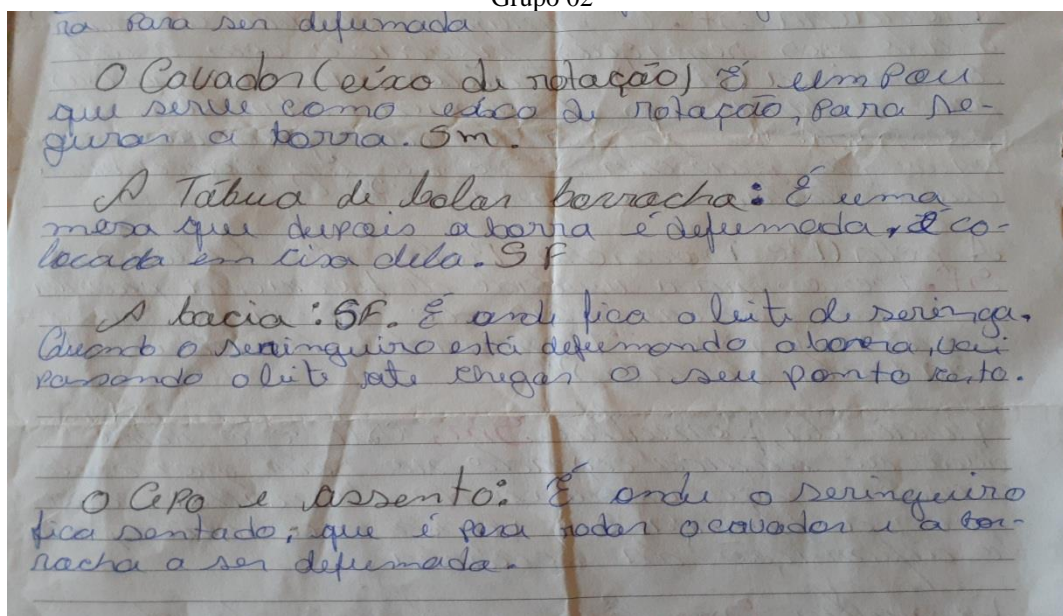 Grupo 02
ra para ser defumada
O Cavador (eixo de rotação) É um pau
que serve como eixo de rotação, para se-
gurar a borra. Sm.
A Tábua de bolar borracha: É uma
mesa que depois a borra é defumada, é co-
locada em cisa dela. SF
A bacia: SF. É onde fica o leite de seringa.
Quando o seringueiro está defumando a borra, vai
passando o leite até chegar o seu ponto certo.
O Cepo e assento: É onde o seringueiro
fica sentado; que é para rodar o cavador e a bor-
racha a ser defumada.